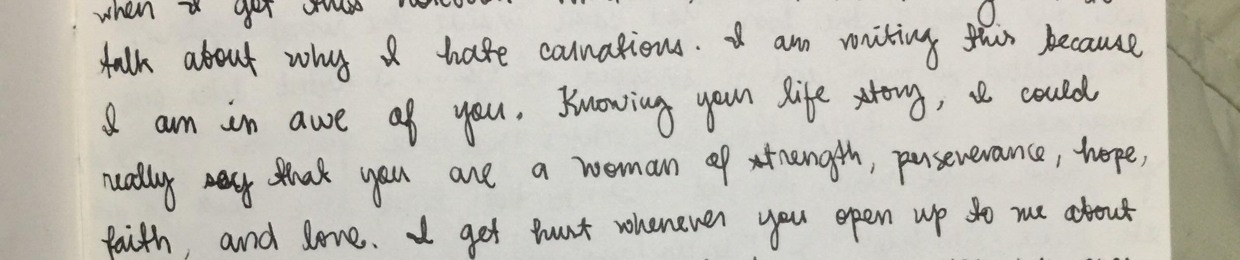 when I get this
talk about why I hate carnations. I am writing this because
I am in awe of you. Knowing your life story, I could
really say that you are a woman of strength, perseverance, hope,
faith, and love. I get hurt whenever you open up to me about